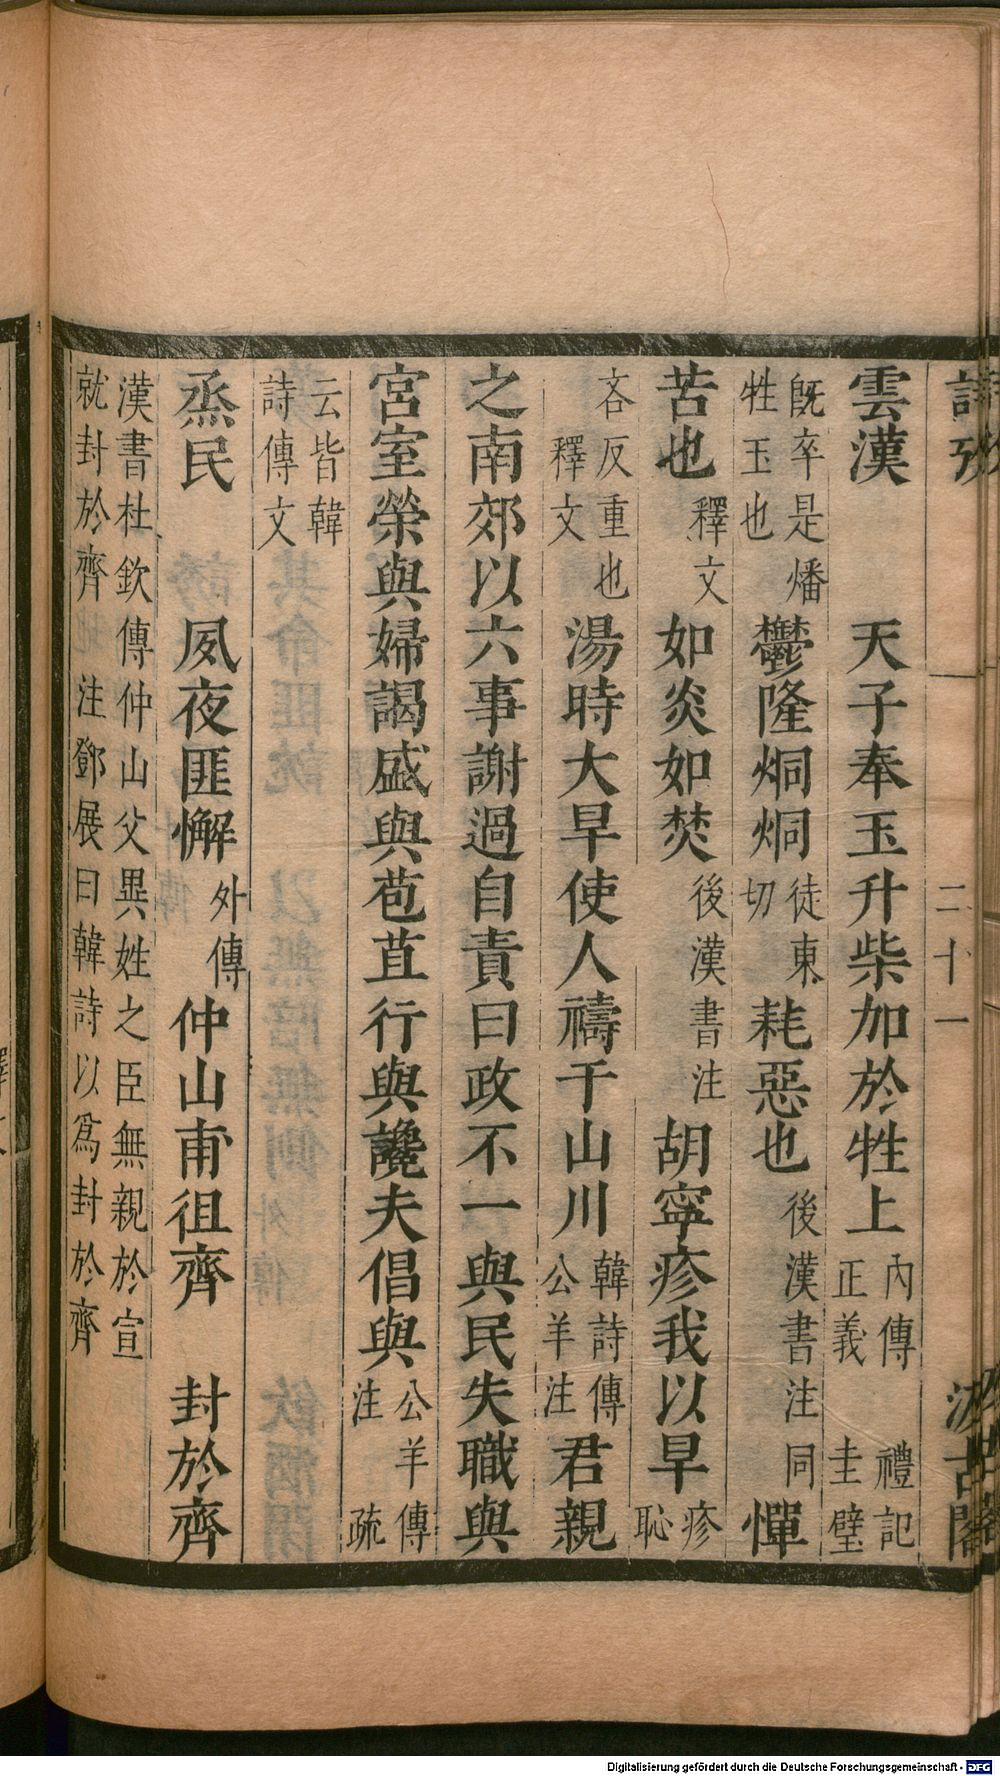 詩攷 二十一 汲古閣
雲漢 天子奉玉升柴加於牲上 內傳 正義 禮記 圭璧
既卒是燔 牲玉也 鬱隆炯炯 徒東 切 耗惡也 後漢書注同 憚
苦也 釋文 如炎如焚 後漢書注 胡寧疹我以旱 疹 恥
吝反重也 釋文 湯時大旱使人禱于山川 韓詩傳 公羊注 君親
之南郊以六事謝過自責曰政不一與民失職與
宮室榮與婦謁盛與苞苴行與讒夫倡與 公羊傳 注疏
云皆韓 詩傳文
烝民 夙夜匪懈 外傳 仲山甫徂齊 封於齊
漢書杜欽傳仲山父異姓之臣無親於宣
就封於齊 注鄧展曰韓詩以爲封於齊
Digitalisierung gefördert durch die Deutsche Forschungsgemeinschaft - DFG